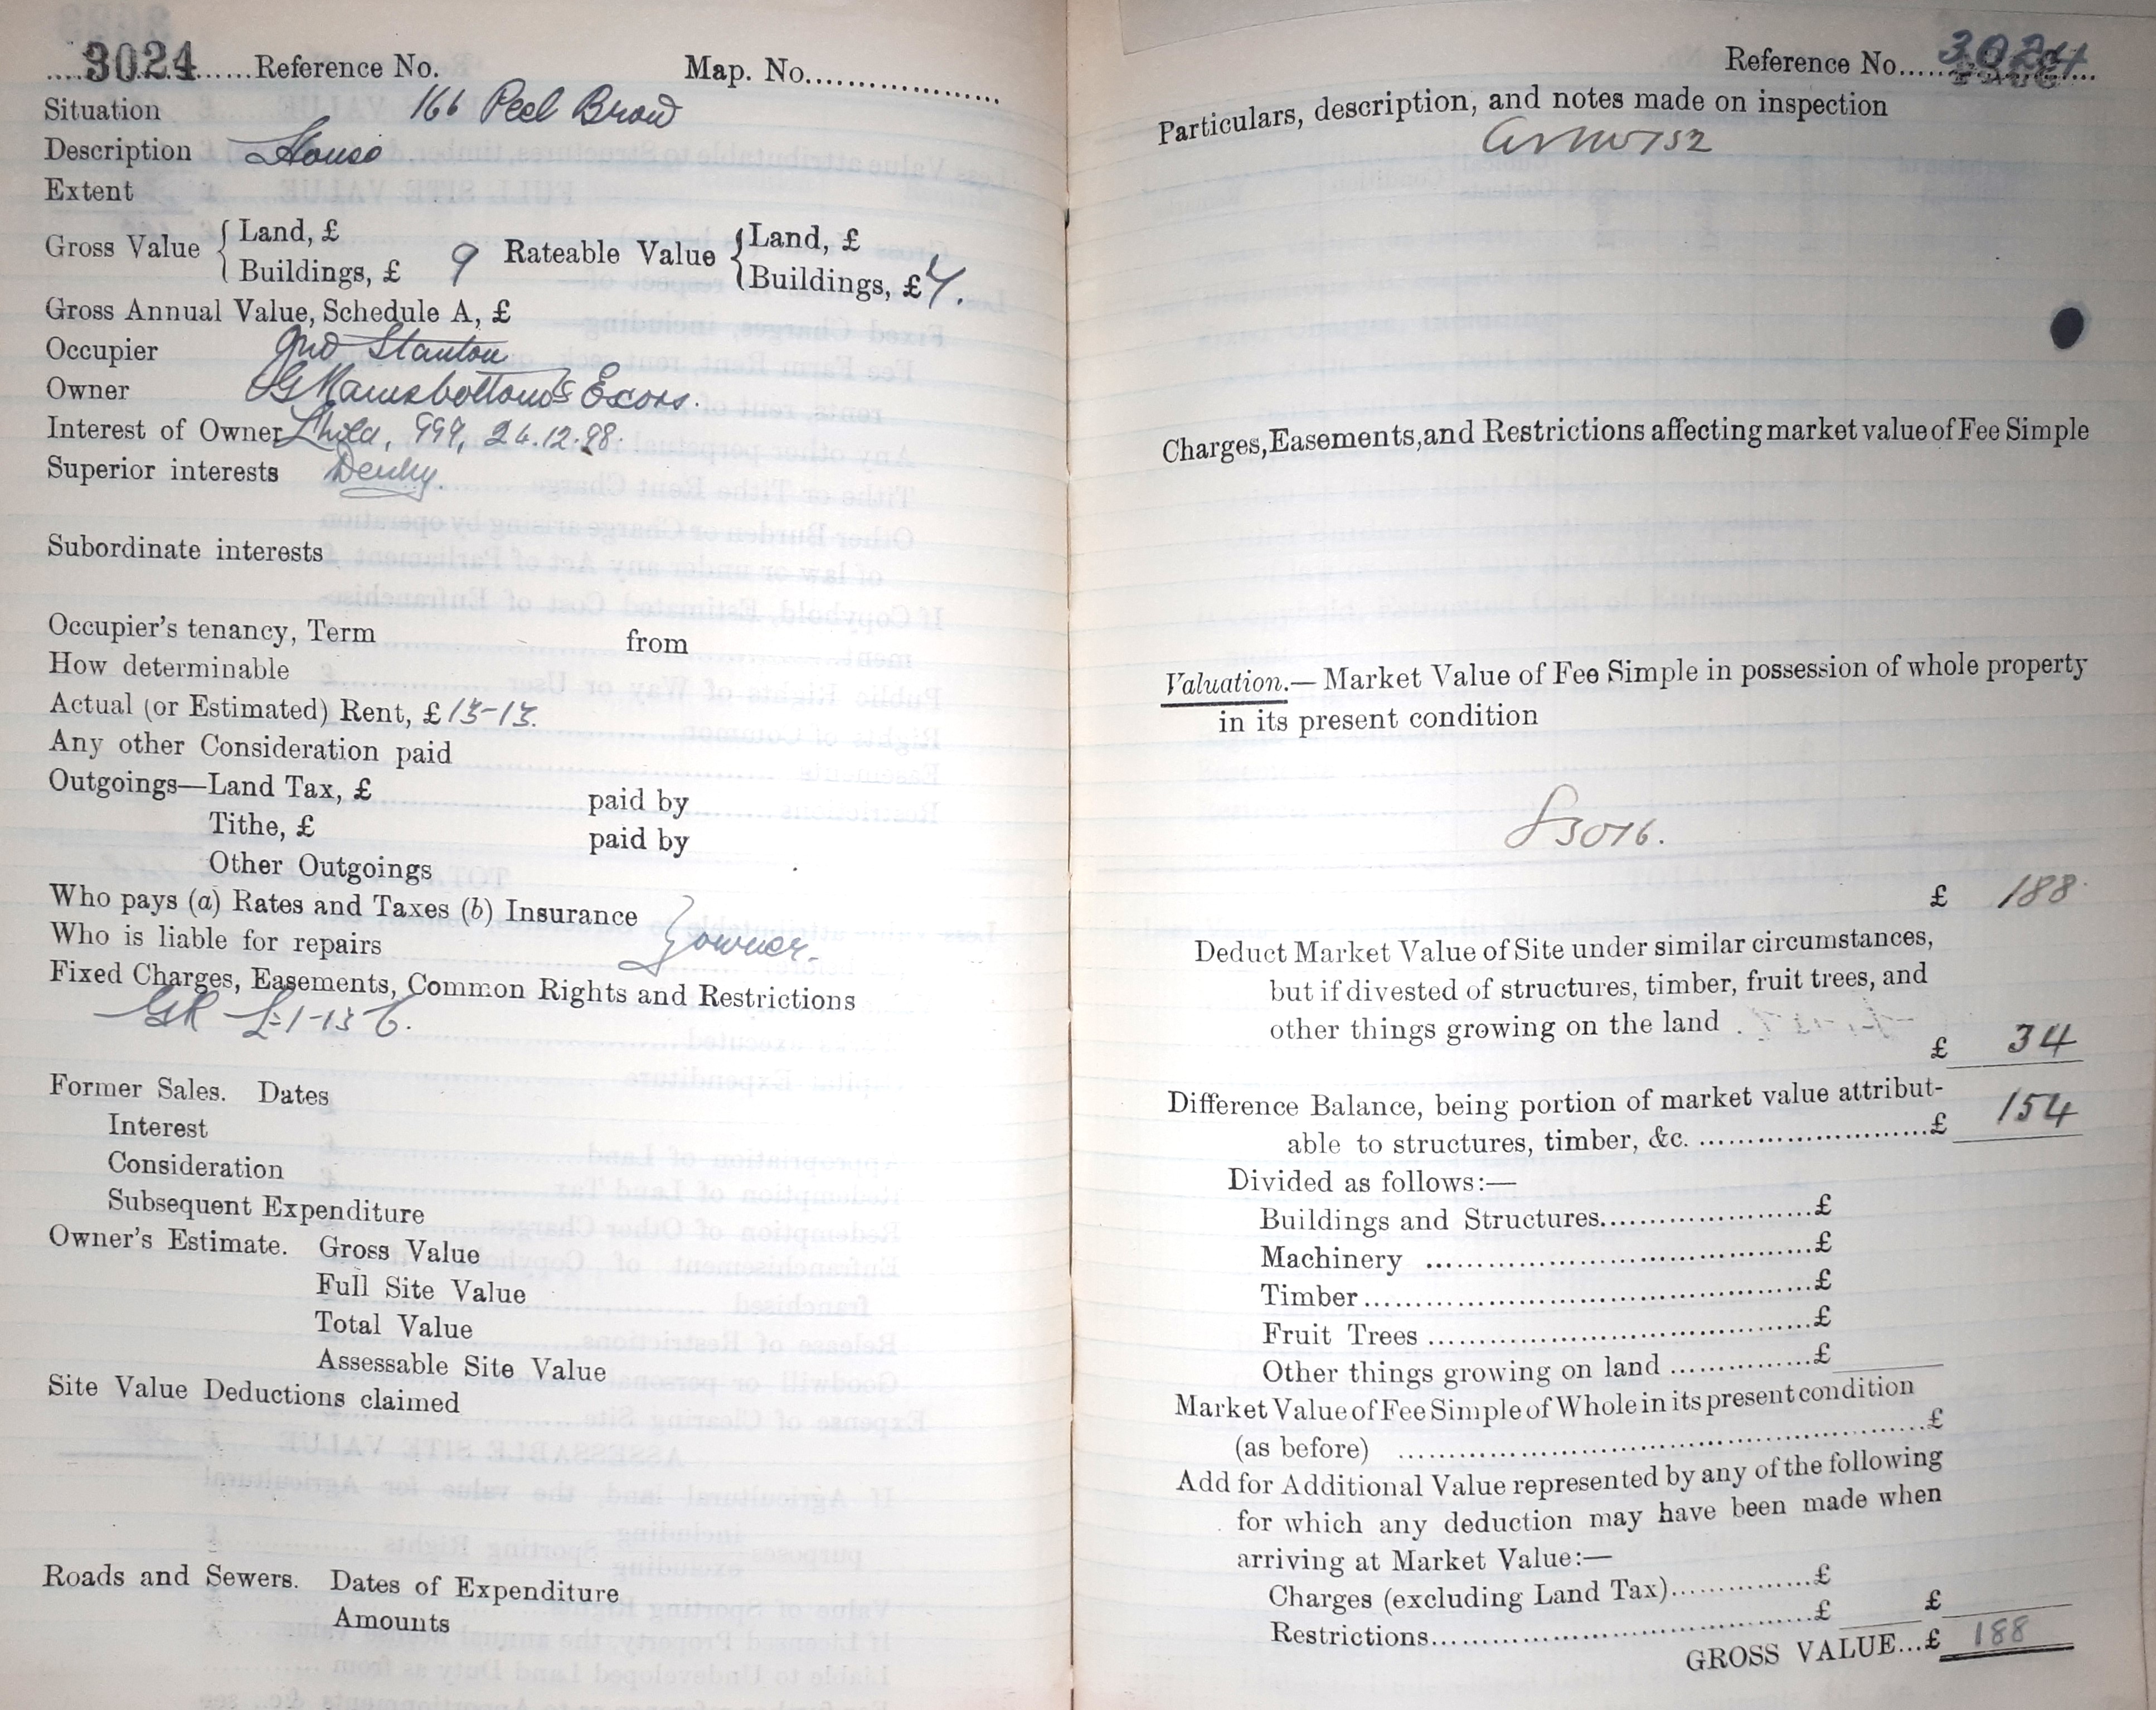 3024 Reference No. Map. No.
Situation 166 Peel Brow
Description House
Extent
Gross Value { Land, £
Buildings, £ 9
Rateable Value { Land, £
Buildings, £
Gross Annual Value, Schedule A, £
Occupier Jno Stanton
Owner Ramsbottom's Exors.
Interest of Owner Lhold, 999, 24.12.98.
Superior interests Derby.
Subordinate interests
Occupier's tenancy, Term from
How determinable
Actual (or Estimated) Rent, £ 13-13.
Any other Consideration paid
Outgoings—Land Tax, £ paid by
Tithe, £ paid by
Other Outgoings
Who pays (a) Rates and Taxes (b) Insurance
Who is liable for repairs } owner.
Fixed Charges, Easements, Common Rights and Restrictions
GR £1-13-6.
Former Sales. Dates
Interest
Consideration
Subsequent Expenditure
Owner's Estimate. Gross Value
Full Site Value
Total Value
Assessable Site Value
Site Value Deductions claimed
Roads and Sewers. Dates of Expenditure
Amounts
Reference No. 3024
Particulars, description, and notes made on inspection
Charges, Easements, and Restrictions affecting market value of Fee Simple
Valuation.—Market Value of Fee Simple in possession of whole property
in its present condition
3016.
£ 188
Deduct Market Value of Site under similar circumstances,
but if divested of structures, timber, fruit trees, and
other things growing on the land
£ 34
Difference Balance, being portion of market value attribut-
able to structures, timber, &c. £ 154
Divided as follows:—
Buildings and Structures £
Machinery £
Timber £
Fruit Trees £
Other things growing on land £
Market Value of Fee Simple of Whole in its present condition
(as before) £
Add for Additional Value represented by any of the following
for which any deduction may have been made when
arriving at Market Value:—
Charges (excluding Land Tax) £
Restrictions £ £
GROSS VALUE...£ 188